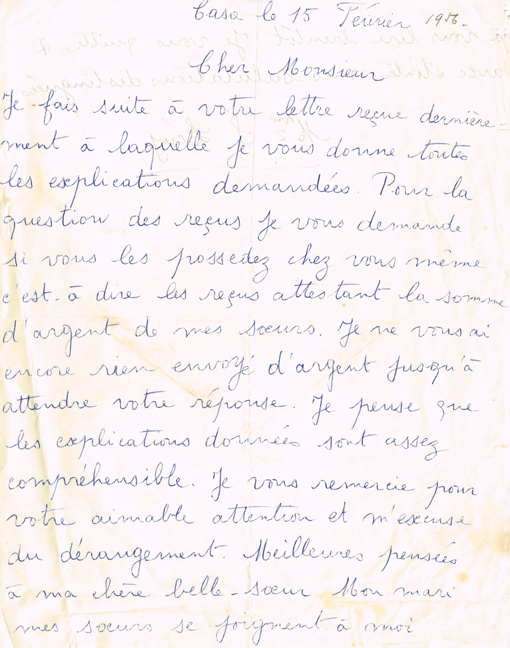 Casa le 15 Février 1956-
Cher Monsieur
Je fais suite à votre lettre reçue dernière-
ment à laquelle je vous donne toutes
les explications demandées. Pour la
question des reçus je vous demande
si vous les possedez chez vous même
c'est-à dire les reçus attestant la somme
d'argent de mes sœurs. Je ne vous ai
encore rien envoyé d'argent jusqu'à
attendre votre réponse. Je pense que
les explications données sont assez
compréhensible. Je vous remercie pour
votre aimable attention et m'excuse
du dérangement. Meilleures pensées
à ma chère belle-sœur Mon mari
mes sœurs se joignent à moi